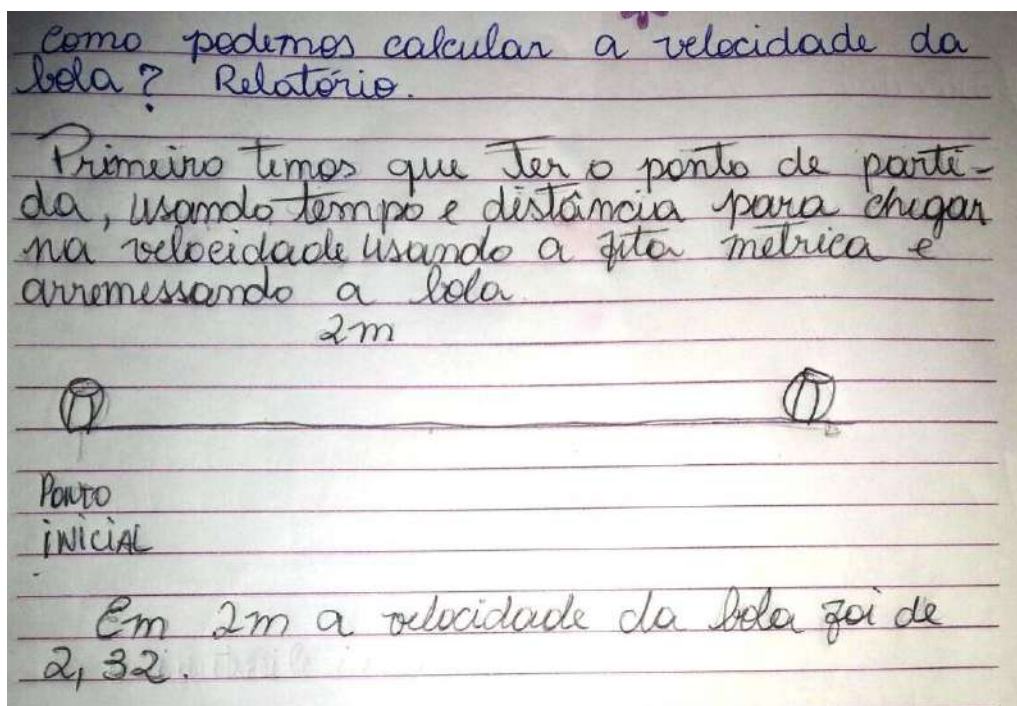 Como podemos calcular a velocidade da
bola? Relatório.
Primeiro temos que ter o ponto de parti-
da, usando tempo e distância para chegar
na velocidade usando a fita métrica e
arremessando a bola
2m
Ponto
inicial
Em 2m a velocidade da bola foi de
2,32.